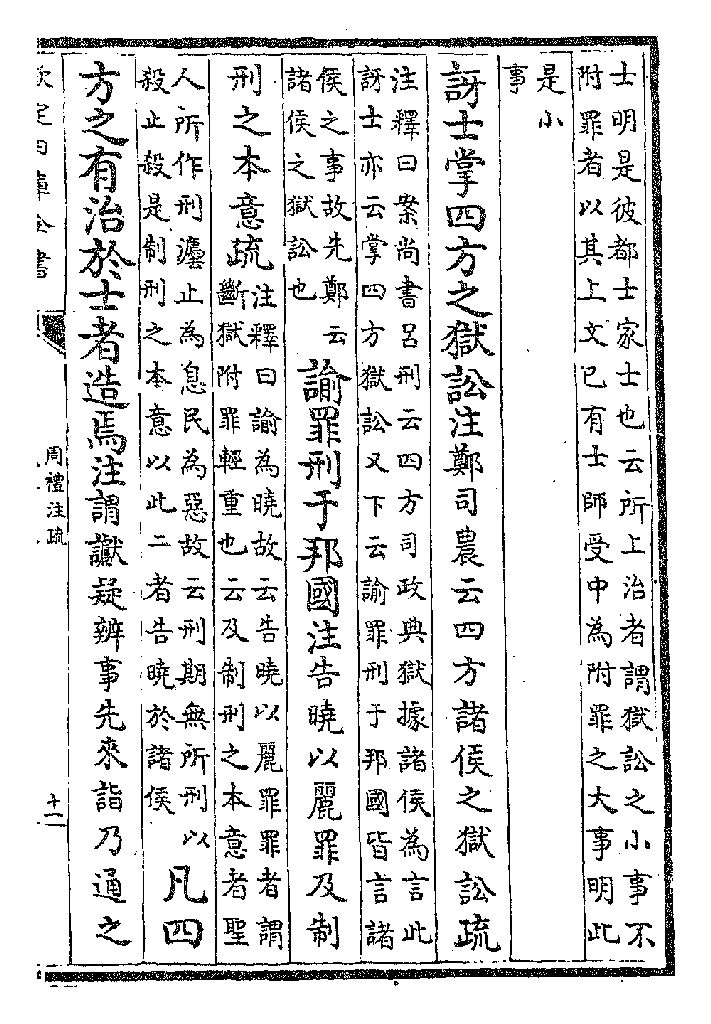 士明是彼都士家士也云所上治者謂獄訟之小事不
附罪者以其上文已有士師受中為附罪之大事明此
是小
事
訝士掌四方之獄訟注鄭司農云四方諸侯之獄訟疏
注釋曰案尚書呂刑云四方司政典獄據諸侯為言此
訝士亦云掌四方獄訟又下云諭罪刑于邦國皆言諸
侯之事故先鄭云
諸侯之獄訟也
諭罪刑于邦國注告曉以麗罪及制
刑之本意疏
注釋曰諭為曉故云告曉以麗罪罪者謂
斷獄附罪輕重也云及制刑之本意者聖
人所作刑灋止為息民為惡故云刑期無所刑以
殺止殺是制刑之本意以此二者告曉於諸侯
凡四
方之有治於士者造焉注謂讞疑辨事先來詣乃通之
欽定四庫全書
周禮注疏
十一